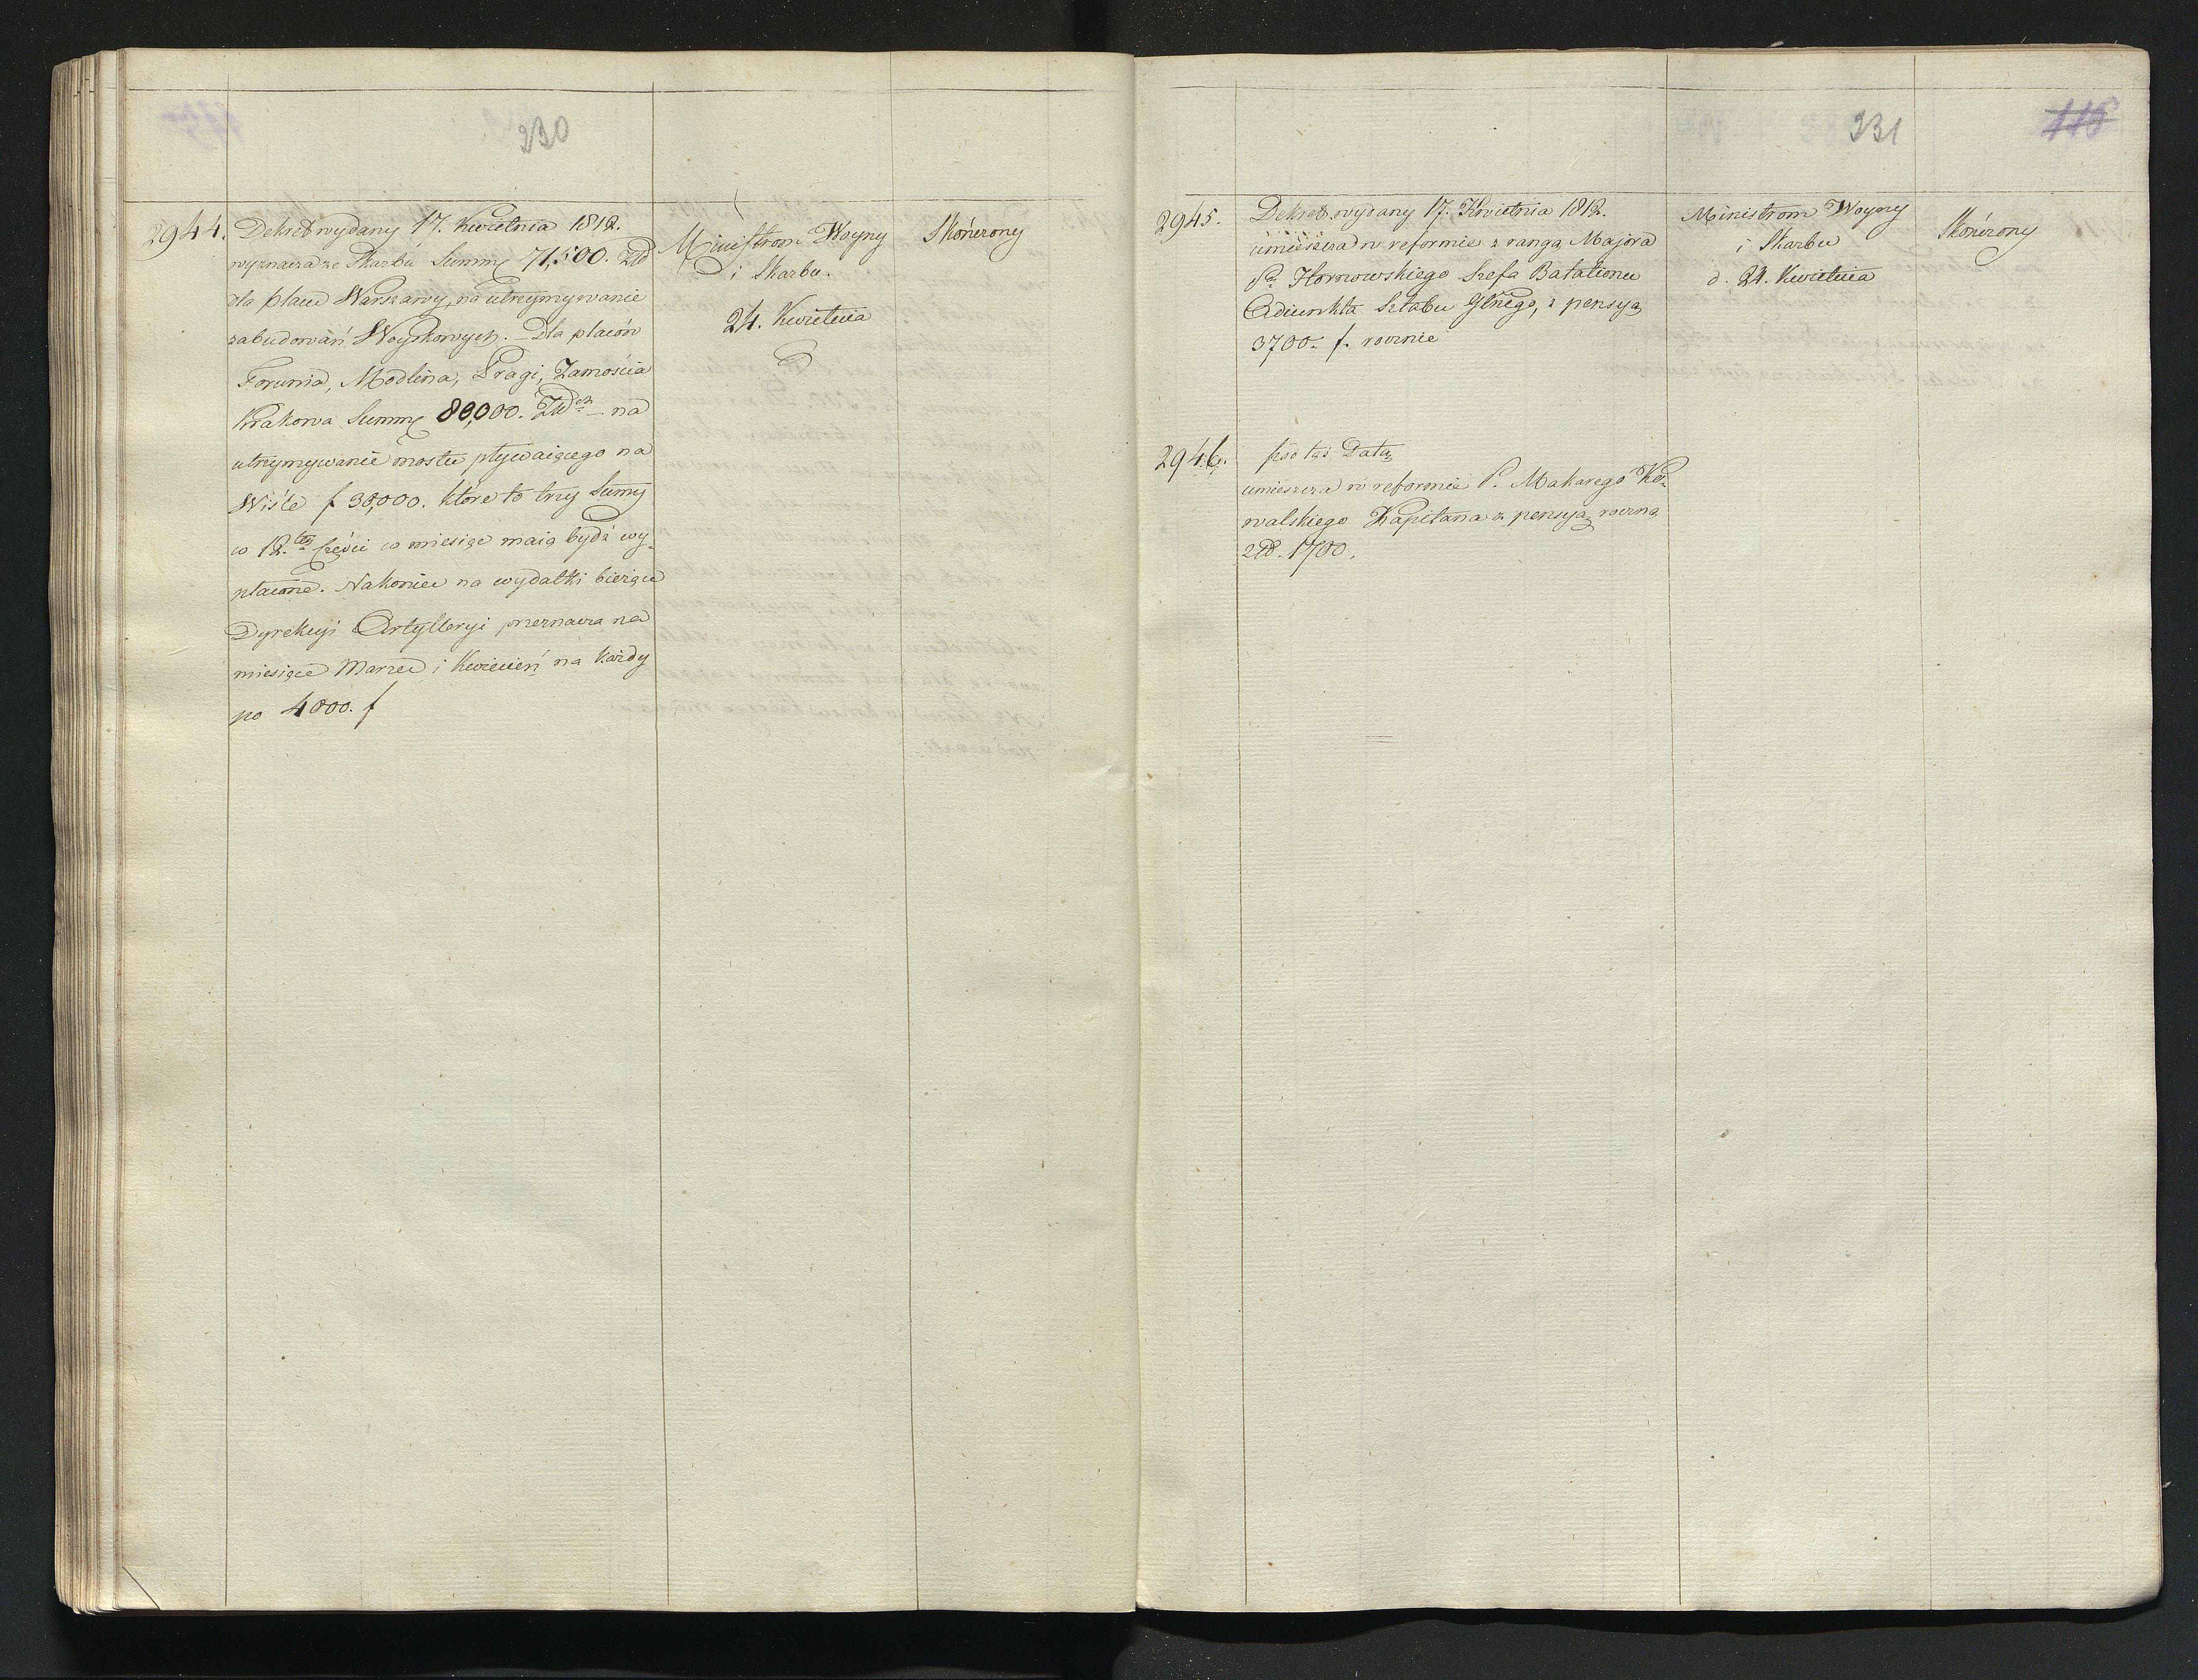 230
2944.
Dekret wydany 17. Kwietnia 1812.
wyznacza ze Skarbu Summę 71,500. Złł
dla placu Warszawy, na utrzymywanie
zabudowań Woyskowych. — Dla placów
Torunia, Modlina, Pragi, Zamościa
Krakowa Summę 80,000. Złł — na
utrzymywanie mostu pływaiącego na
Wiśle f 38,000. które to trzy Summy
w 12.tey Części w miesiąc maią bydź wy-
płacone. Nakoniec na wydatki bieżące
Dyrekcyi Artylleryi przeznacza na
miesiące Marzec i Kwiecień na każdy
po 4000. f
Ministrom Woyny
i Skarbu.
24. Kwietnia
Skończony
231
115
2945.
Dekret wydany 17. Kwietnia 1812.
umieszcza w reformie z rangą Majora
Pa Hornowskiego Szefa Batalionu
Adiunkta Sztabu Głnego, z pensyą
3700. f. rocznie
Ministrom Woyny
i Skarbu
d. 24. Kwietnia
Skończony
2946.
pod tąż Datą
umieszcza w reformie P. Makarego Ko-
walskiego Kapitana z pensyą roczną
Złł. 1700.